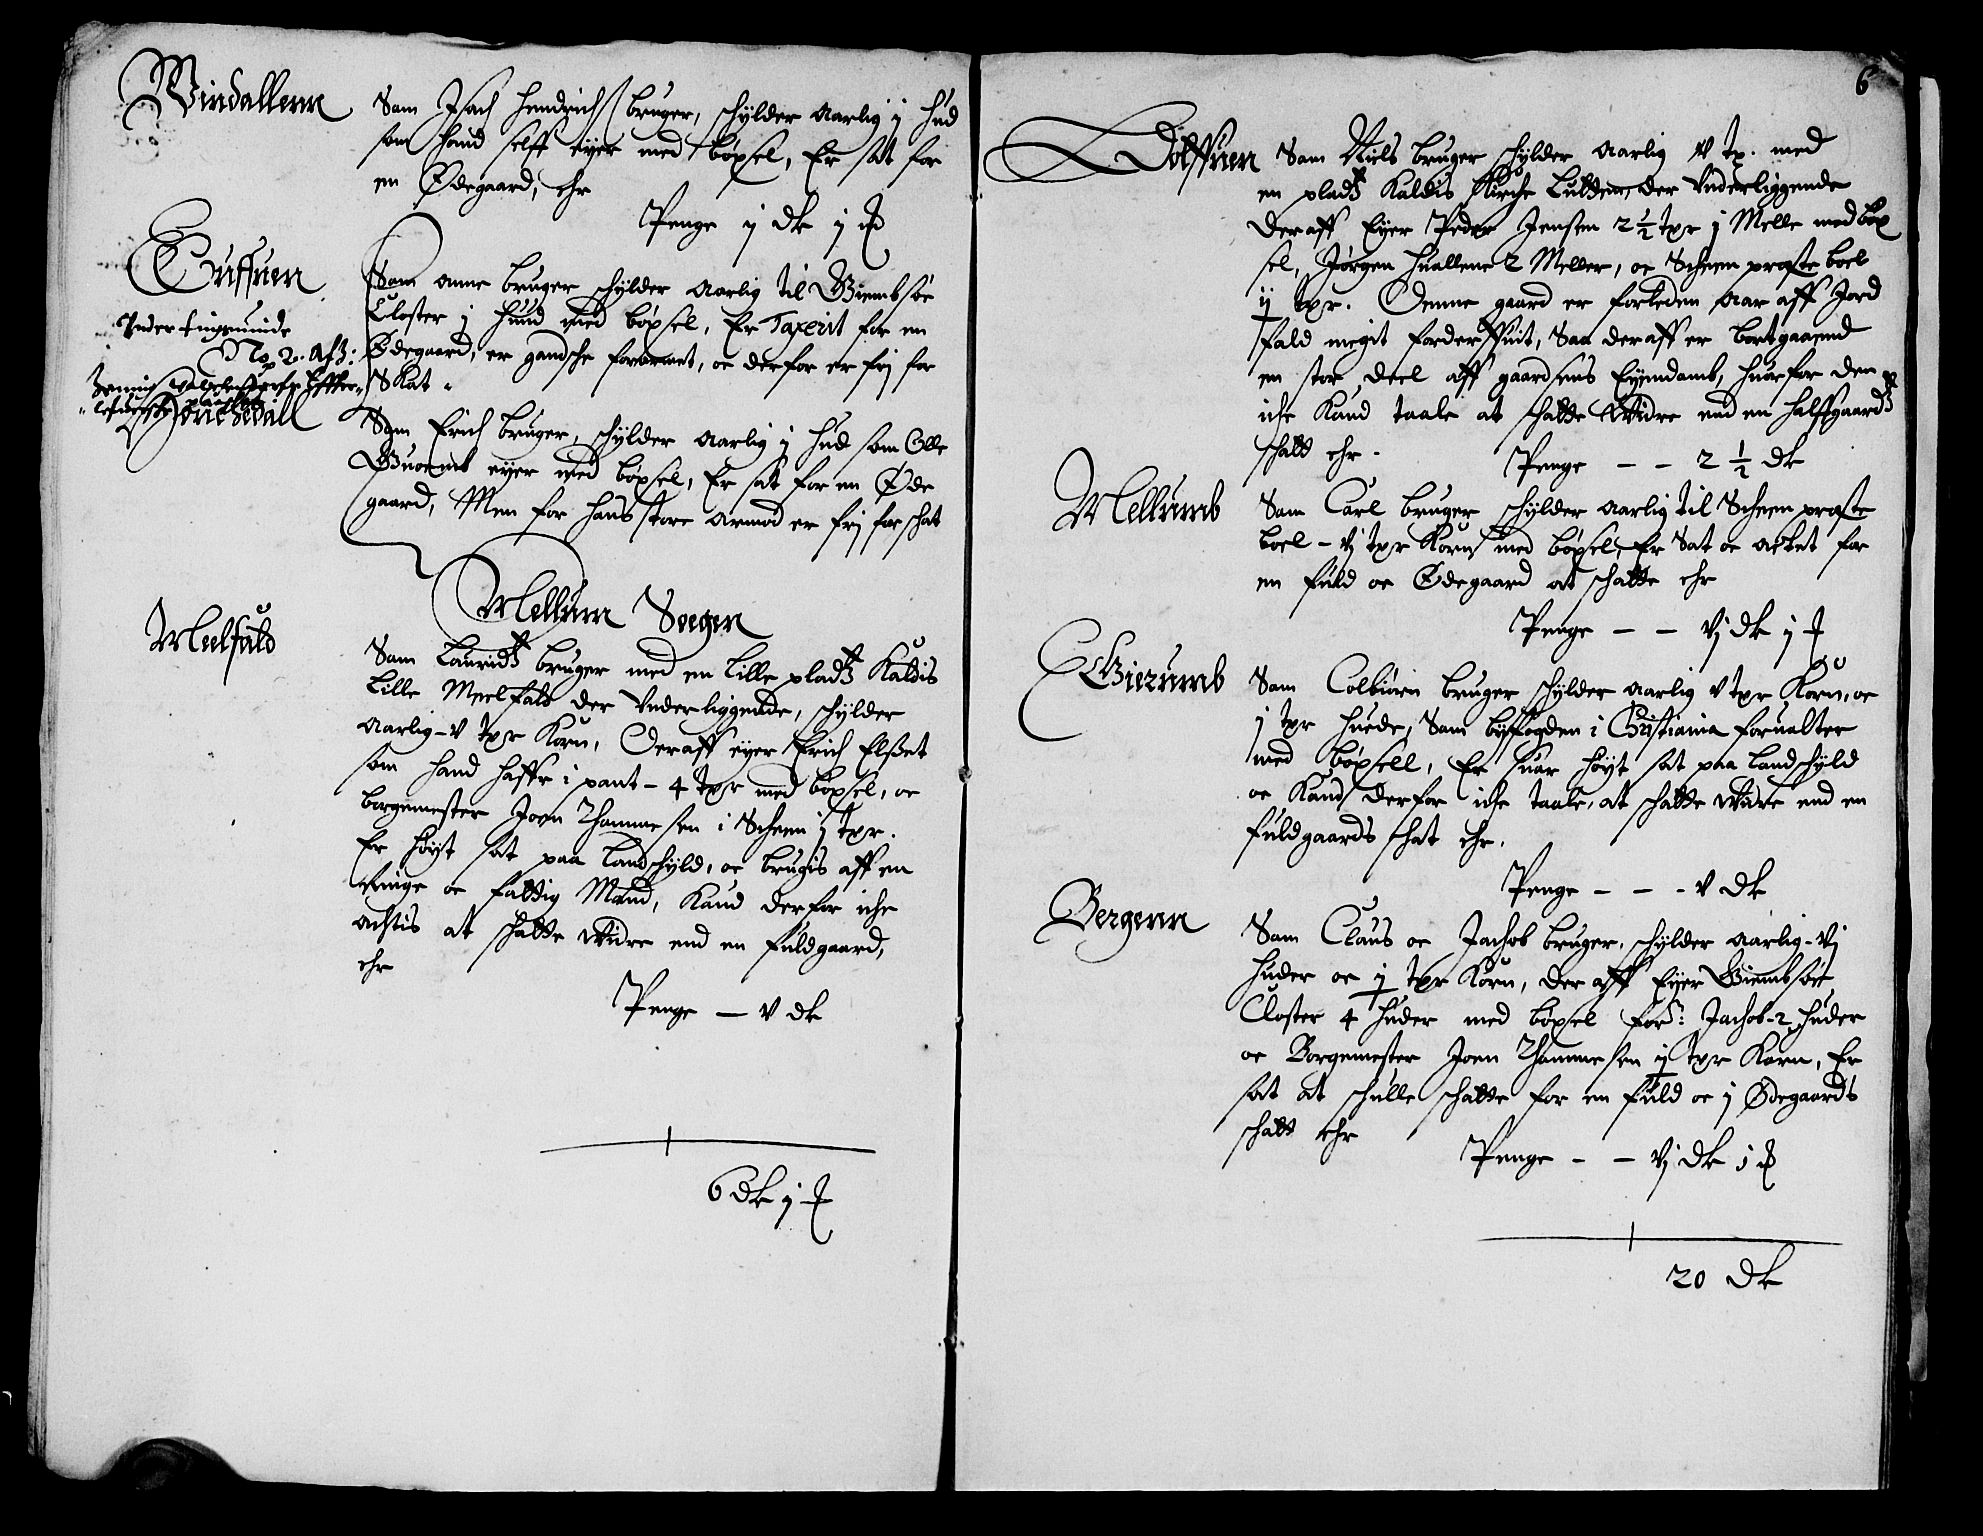 Windallenn
Som Isach Hendrichs bruger, schylder Aarlig j hud
som hand selff eyer med bøxsel, Er sat for
en Ødegaard, ehr
Penge j dlr j
Tuffuen
Som anne bruger schylder Aarlig til Giembsøe
Closter j huud med bøxsel, Er Taxerit for en
Ødegaard, er gandsche forarmet, oc derfor er frj for
Skat
No. 2. Afz:
Som Erich bruger, schylder Aarlig j hud som Olle
eyer med bøxsel, Er sat for en Øde
gaard, Men for hans store armod er frj for schat
Mellum Sogen
Meelfald
Som Lauridtz bruger med en Lille pladtz Kaldis
Lille Meelfald der Vnderliggende, schylder
Aarlig – V tpr Korn, Deraff eyer Erich Elset
som hand haffr i pant – 4 tpr med bøxsel, oc
borgemester Joen Thommesen i Scheen j tpr.
Er høyt sat paa Landschyld, oc brugis aff en
ringe oc fattig Mand, Kand derfor iche
achtis at schatte Widre end en fuldgaard,
ehr
Penge – V dlr
6 dlr j
6
Dolffuen
Som Niels bruger schylder Aarlig V tp. med
en pladtz Kaldis Kirche Lutten, der Vnderliggende
Deraff Eyer Peder Jensen 2 ½ tpr j Melle med bøx
sel, Jørgen Huallene 2 Meller, oc Scheen præste boel
ij tpr. Denne gaard er forleden Aar aff Jord
fald megit forderffuit, Saa deraff er bortgaaend
en stor deel aff gaardsens Eyendomb, huorfor den
iche Kand taale at schatte Widre end en halffgaardtz
schatt ehr.
Penge – – 2 ½ dlr
Mellumb
Som Carl bruger schylder Aarlig til Scheen præste
boel – Vj tpr Korn med bøxsel, Er Sat oc actet for
en fuld oc Ødegaard at schatte ehr
Penge – – Vj dlr j
Gierumb
Som Colbiørn bruger schylder Aarlig V tpr Korn, oc
j tpr huede, Som byffogden i Christiania forualter
med bøxsell, Er huar høyt sat paa Landschyld
oc Kand derfor iche taale, at schatte Widre end en
fuldgaards schat ehr.
Penge – – – V dlr
Bergenn
Som Claus oc Jachob bruger, schylder Aarlig – Vj
huder oc ij tpr Korn, der aff Eyer Giembsøe
Closter 4 huder med bøxsel for: Jachob – 2 huder
oc Borgemester Joen Thommesen ij tpr Korn, Er
sat at schulle schatte for en fuld oc j Ødegaards
schatt ehr
Penge – – Vj dlr j
20 dlr